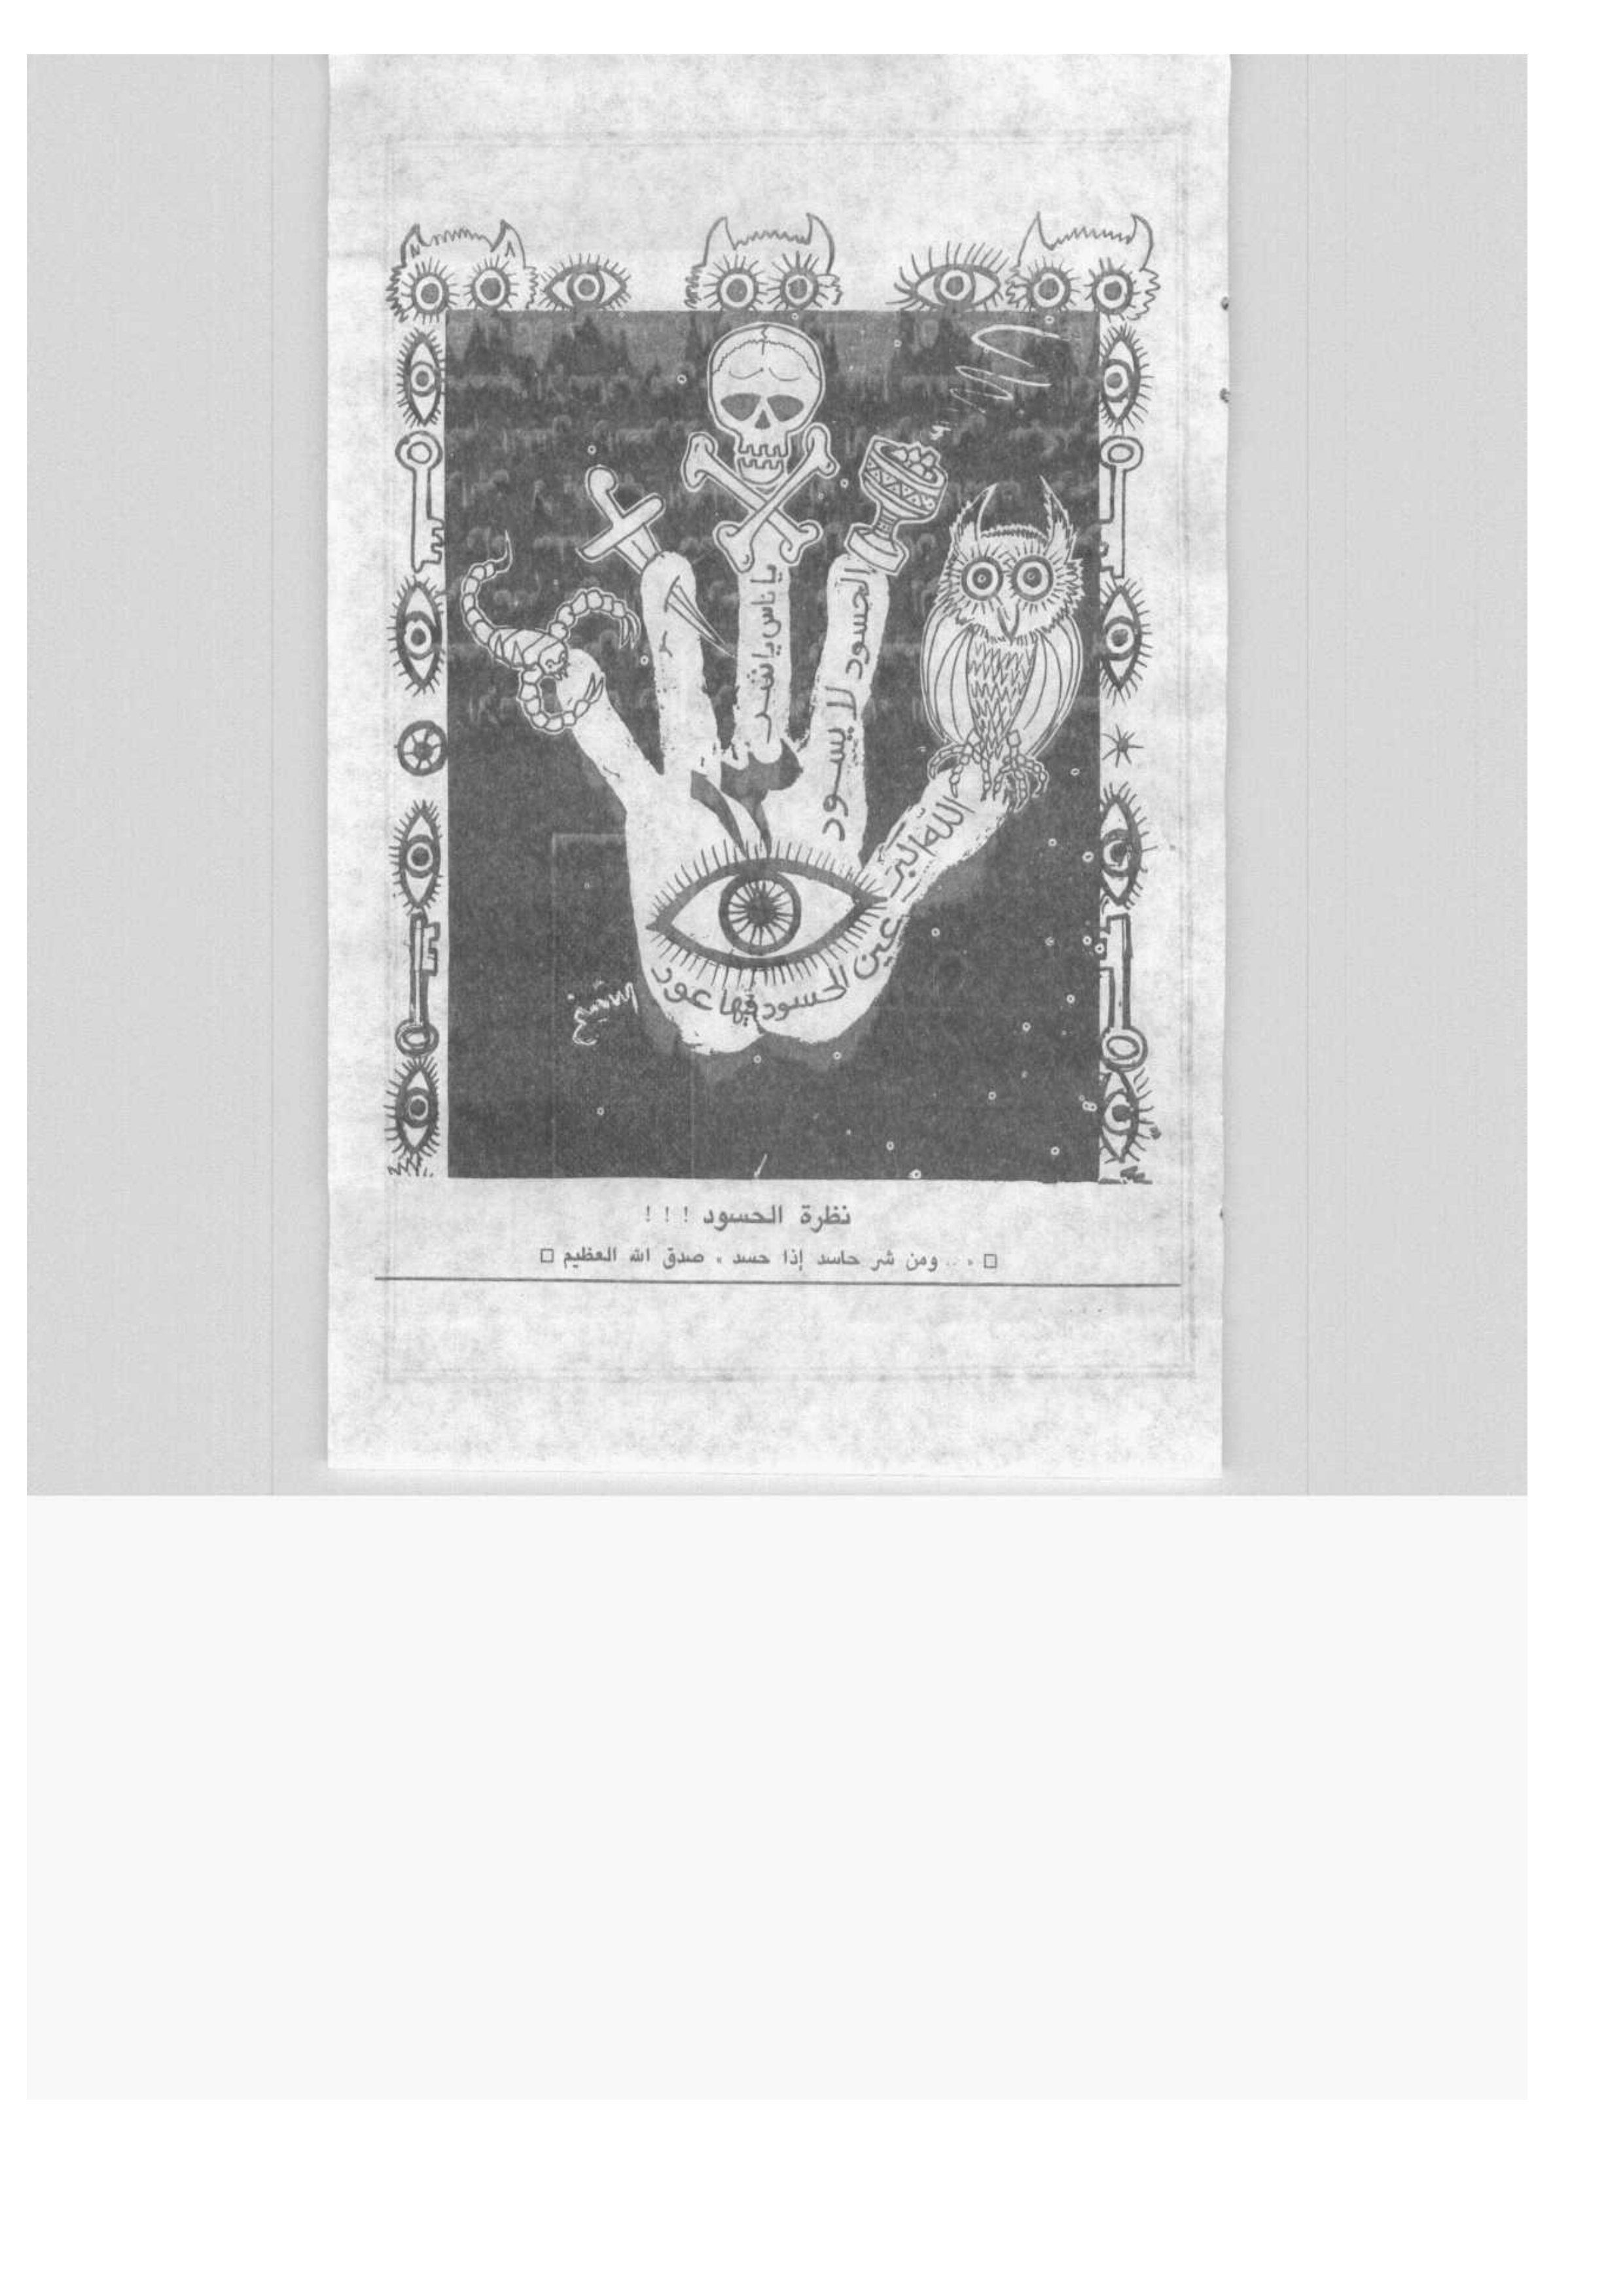 يا ناس يا شر
الحسود لا يسود
الله اكبر
عين الحسود فيها عود
نظرة الحسود ! ! !
□ « .. ومن شر حاسد إذا حسد » صدق الله العظيم □